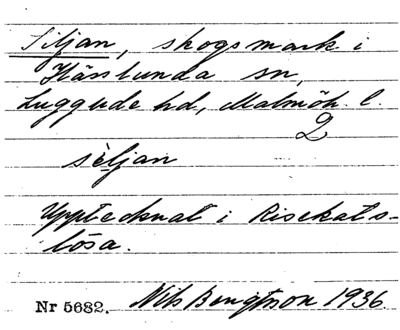 Siljan, skogsmark i
Hässlunda sn,
Luggude hd, Malmöh. l.
2
sèljan
Upptecknat i Risekats-
lösa.
Nr 5682. Nils Bengtson 1936.